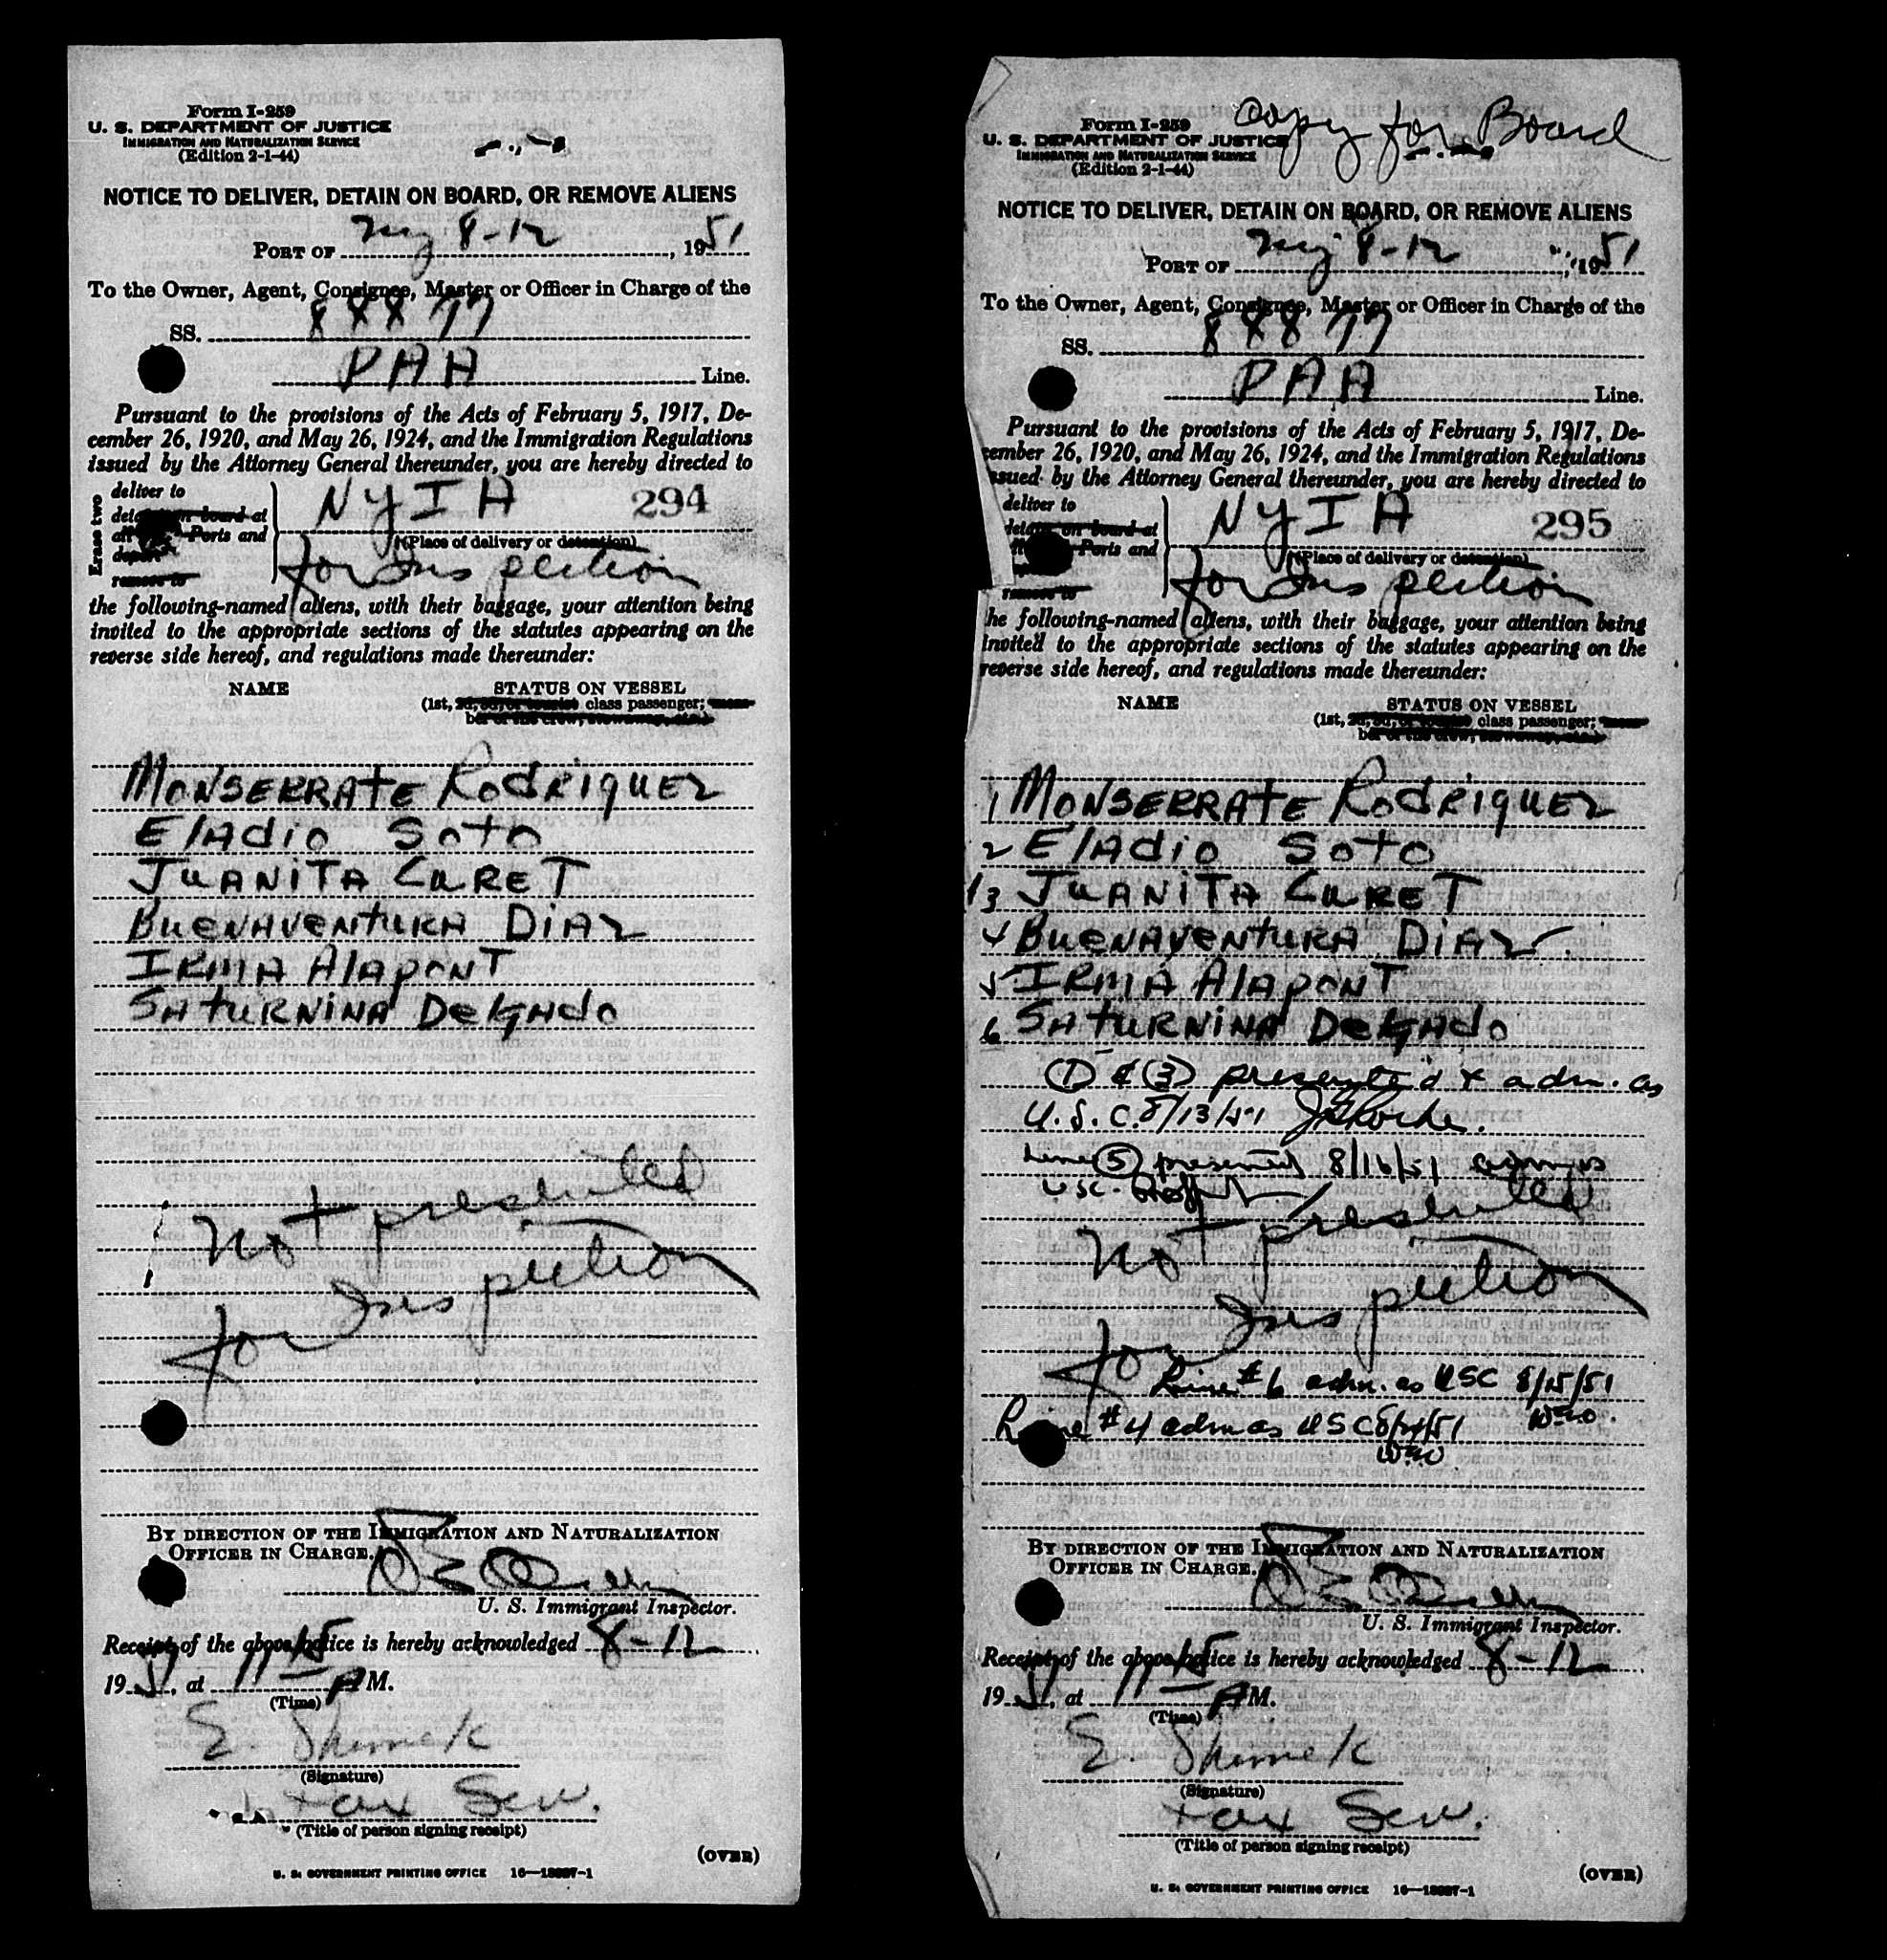 Form I-259
U. S. DEPARTMENT OF JUSTICE
IMMIGRATION AND NATURALIZATION SERVICE
(Edition 2-1-44)
NOTICE TO DELIVER, DETAIN ON BOARD, OR REMOVE ALIENS
PORT OF 8-12, 1951
To the Owner, Agent, Consignee, Master or Officer in Charge of the
SS. 88877
PAA Line.
Pursuant to the provisions of the Acts of February 5, 1917, De-
cember 26, 1920, and May 26, 1924, and the Immigration Regulations
issued by the Attorney General thereunder, you are hereby directed to
Erase two
deliver to
detain on board at
Ports and
depot
remove to
NYIA 294
(Place of delivery or detention)
for Inspection
the following-named aliens, with their baggage, your attention being
invited to the appropriate sections of the statutes appearing on the
reverse side hereof, and regulations made thereunder:
NAME STATUS ON VESSEL
(1st, 2d, 3d, or tourist class passenger; mem-
ber of the crew, stowaway, etc.)
MONSERRATE RODRIQUEZ
ELADIO SOTO
JUANITA CURET
BUENAVENTURA DIAZ
IRMA ALAPONT
SATURNINA DELGADO
Not presented
for Inspection
BY DIRECTION OF THE IMMIGRATION AND NATURALIZATION
OFFICER IN CHARGE.
U. S. Immigrant Inspector.
Receipt of the above notice is hereby acknowledged 8-12
1951, at 11 15 AM.
(Time)
E. Shimek
(Signature)
Serv.
(Title of person signing receipt)
(OVER)
U. S. GOVERNMENT PRINTING OFFICE 16—13327-1
Copy for Board
Form I-259
U. S. DEPARTMENT OF JUSTICE
IMMIGRATION AND NATURALIZATION SERVICE
(Edition 2-1-44)
NOTICE TO DELIVER, DETAIN ON BOARD, OR REMOVE ALIENS
PORT OF 8-12, 1951
To the Owner, Agent, Consignee, Master or Officer in Charge of the
SS. 88877
PAA Line.
Pursuant to the provisions of the Acts of February 5, 1917, De-
cember 26, 1920, and May 26, 1924, and the Immigration Regulations
issued by the Attorney General thereunder, you are hereby directed to
deliver to
detain on board at
Ports and
remove to
NYIA 295
(Place of delivery or detention)
for Inspection
he following-named aliens, with their baggage, your attention being
invited to the appropriate sections of the statutes appearing on the
reverse side hereof, and regulations made thereunder:
NAME STATUS ON VESSEL
(1st, 2d, 3d, or tourist class passenger; mem-
ber of the crew, stowaway, etc.)
1 MONSERRATE RODRIQUEZ
2 ELADIO SOTO
3 JUANITA CURET
4 BUENAVENTURA DIAZ
5 IRMA ALAPONT
6 SATURNINA DELGADO
① & ③ presented & adm. as
U.S.C. 8/13/51
Line ⑤ presented 8/16/51 adm as
USC.
Not presented
for Inspection
Line #6 adm. as USC 8/15/51
Line #4 adm as USC 8/14/51
BY DIRECTION OF THE IMMIGRATION AND NATURALIZATION
OFFICER IN CHARGE.
U. S. Immigrant Inspector.
Receipt of the above notice is hereby acknowledged 8-12
1951, at 11 15 AM.
(Time)
E. Shimek
(Signature)
Serv.
(Title of person signing receipt)
(OVER)
U. S. GOVERNMENT PRINTING OFFICE 16—13327-1